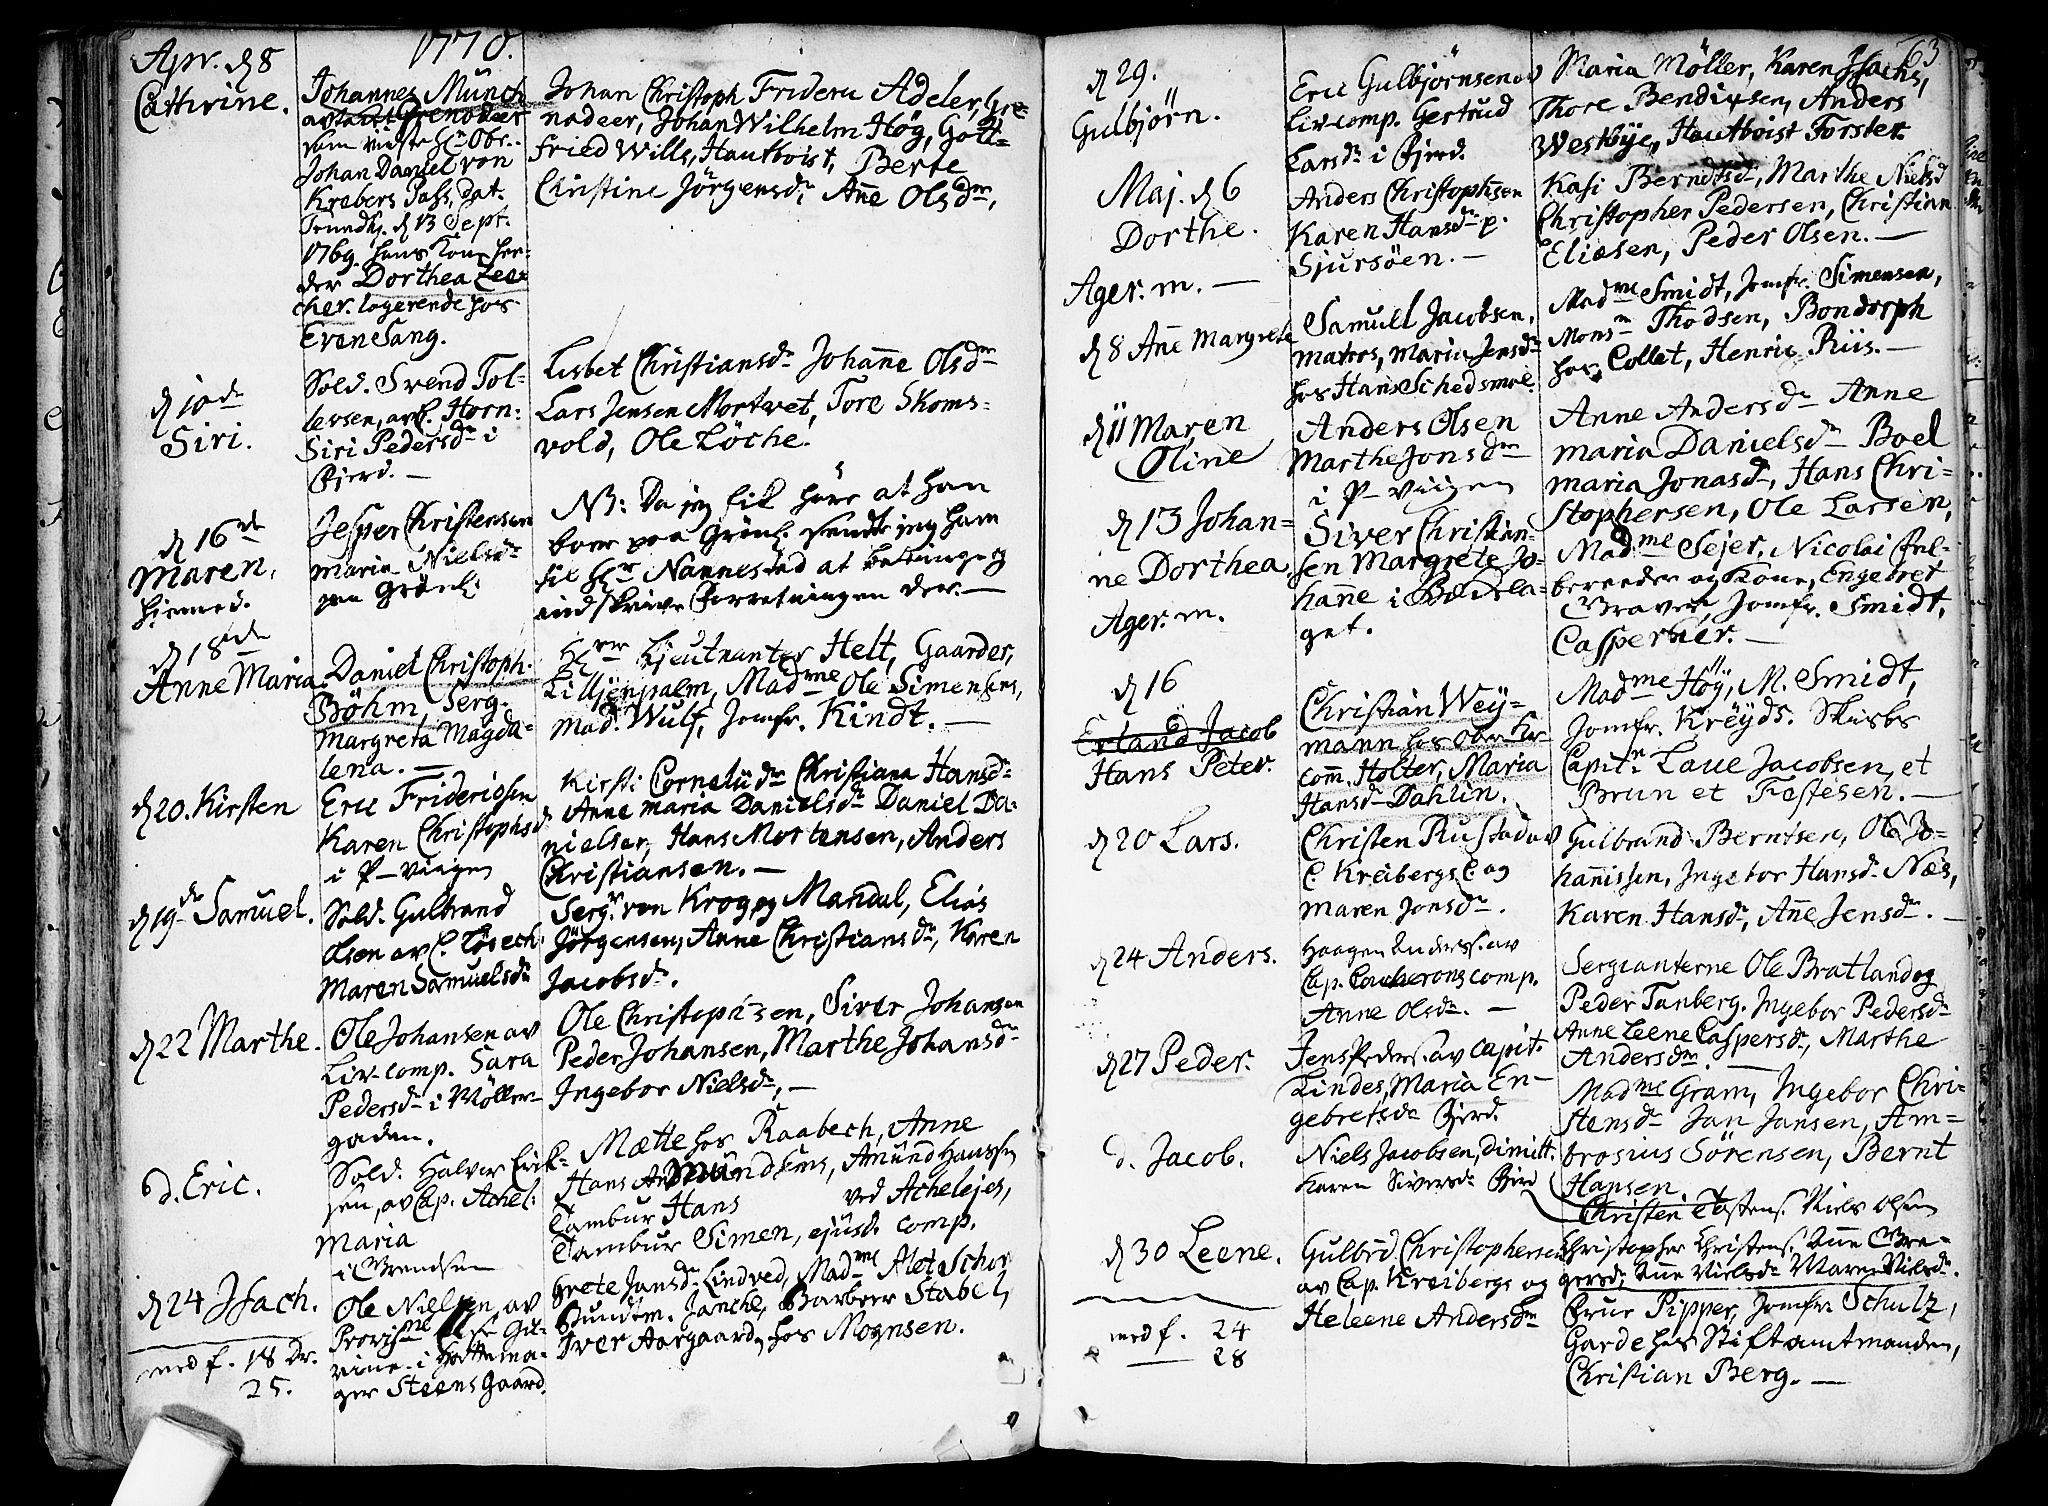 1770.
Apr. d 8
Cathrine.
Johannes Münch
Grenadeer
Johan Daniel von
Krebers Pass, dat.
Trundhj. d 13 Sept.
1769. hans Kone
der Dorthea Zee-
cher. logerende hos
Even Sang.
Johan Christoph Frideric Adeler, Gre-
nadeer, Johan Wilhelm Høg, Gott-
fried Wills, Hautboist, Berte
Christine Jörgensdr. Añe Olsdr,
d 10de
Siri.
Sold. Svend Tol-
levsen, av C. Horn:
Siri Pedersdr i
Fjerd. —
Lisbet Christiansdr Johañe Olsdr
Lars Jensen Mortvet, Tore Skoms-
vold, Ole Löche.
d 16de
Maren,
hiemmed.
Jesper Christensen
Maria Nielsdr
paa Grönl:
NB: Da jeg fik höre at han
boer paa Grönl. sendte jeg ham
til Hr Nannestad at betinge og
indskrive Forretningen der. —
d 18de
Anne Maria
Daniel Christoph.
Böhm, Serg.
Margreta Magda-
lena. —
Lieutnanter Helt, Gaarder,
Lilljenpalm, Madme Ole Simensens,
Mad. Wulf, Jomfr. Kindt. —
d 20. Kirsten
Eric Fridericsen
Karen Christophsd
i P-viigen
Kirsti Corneliidr Christiana Hansdr
Anne Maria Danielsdr Daniel Da-
nielsen, Hans Mortensen, Anders
Christiansen. —
d 19de Samuel.
Sold. Gulbrand
Olsen av C. Tösech:
Maren Samuelsdr
Sergr von Krog og Mandal, Elias
Jörgensen, Anne Christiansdr, Karen
Jacobsdr.
d 22 Marthe.
Ole Johansen av
Liv-comp. Sara
Pedersdr i Möller-
gaden.
Ole Christophersen, Siver Johansen
Peder Johansen, Marthe Johansdr
Ingebor Nielsdr, —
d. Eric.
Sold. Halvor Erik-
sen, av Cap. Achel:
Maria
i Grendsen
Mætte hos Raabech, Anne
Hans Amundsens, Amund Hanssen
Tambur Hans ved Achelejes,
Tambur Simen, ejusd. comp.
d 24 Isach.
Ole Nielsen av
Steens Gaard.
Grete Jansdr Lindved, Madme Alet Schor
Bundtm. Jancke, Barbeer Stabel,
Iver Aargaard, hos Mognsen.
med f. 18 Dr.
25.
63
d 29.
Gulbjörn.
Eric Gulbjörnsen av
Liv-comp. Gertrud
Larsdr i Fjerd.
Maria Möller, Karen Isachs,
Thore Bendixsen, Anders
Westbye, Hautboist Forster.
Maj. d 6
Dorthe.
Ager. m. —
Anders Christophsen
Karen Hansdr p.
Sjursöen. —
Kasi Berndtsd, Marthe Nielsd
Christopher Pedersen, Christian
Eliasen, Peder Olsen. —
d 8 Añe Margrete
Samuel Jacobsen,
Matros, Maria Jensdr
hos Hans Schedsmoe
Madme Smidt, Jomfr. Simensen,
Monsr Thodsen, Bondorph
hos Collet, Henric Riis. —
d 11 Maren
Oline
Anders Olsen
Marthe Jonsdr
i P-viigen
Anne Andersdr Anne
Maria Danielsdr Boel
Maria Jonasdr, Hans Chri-
stophersen, Ole Larsen,
d 13 Johan-
ne Dorthea.
Ager. m.
Siver Christian-
sen Margrete Jo-
hañe i
get.
Madme Sejer, Nicolai
og Kone, Engebret
Graver, Jomfr. Smidt,
Casper
d 16
Erland Jacob
Hans Peter.
Christian Wey-
mann hos Ober-Kr-
com. Holter, Maria
Hansdr Dahlin.
Madme Höy, M. Smidt,
Jomfr. Kreyds. Skibs
Capitn Laue Jacobsen, et
Brun et Festesen. —
d 20 Lars.
Christen Rustad av
C Kreibergs C og
Maren Jonsdr.
Gulbrand Berntsen, Ole Jo-
hañissen, Ingebor Hansdr Næs,
Karen Hansdr, Añe Jensdr. —
d 24 Anders.
Haagen Anderss. av
Cap. Coucherons comp.
Anne Olsdr. —
Sergianterne Ole Bratland og
Peder Tanberg. Ingebor Pedersdr
Anne Leene Caspersdr, Marthe
Andersdr. —
d 27 Peder.
Jens Peders. av Capit.
Lindes, Maria En-
gebretsdr Fjerd.
Madme Gram, Ingebor Chri-
stensdr Jan Jansen, Am-
brosius Sörensen, Bernt
Hansen
d. Jacob.
Niels Jacobsen, Dimitt.
Karen Siversdr Fjerd
Christen Tostens. Niels Olsen
Christopher Christens. Anne Bre-
gersd. Anne Nielsdr Maren Nielsdr.
d 30 Leene.
Gulbrd. Christophersen
av Cap. Kreibergs og
Heleene Andersdr
Frue Pipper, Jomfr. Schulz,
Garde hos Stiftamtmanden,
Christian Berg. —
med f. 24
28